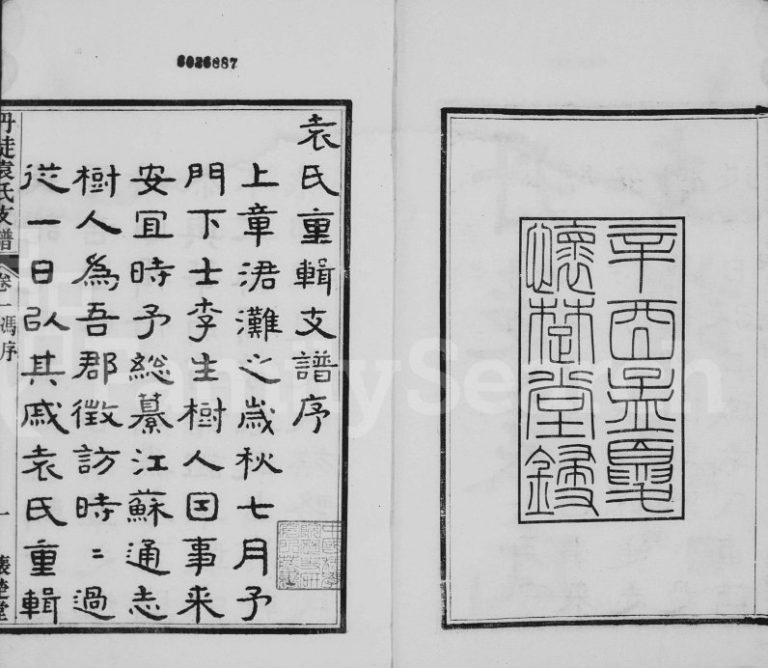 辛酉孟夏
懷楚堂鋟
6026887
袁氏重輯支譜序
上章涒灘之歲秋七月予
門下士李生樹人因事来
安宜時予總纂江蘇通志
樹人為吾郡徵訪時〻過
從一日以其戚袁氏重輯
丹徒袁氏支譜 卷一 馮序 一 懷楚堂
FamilySearch